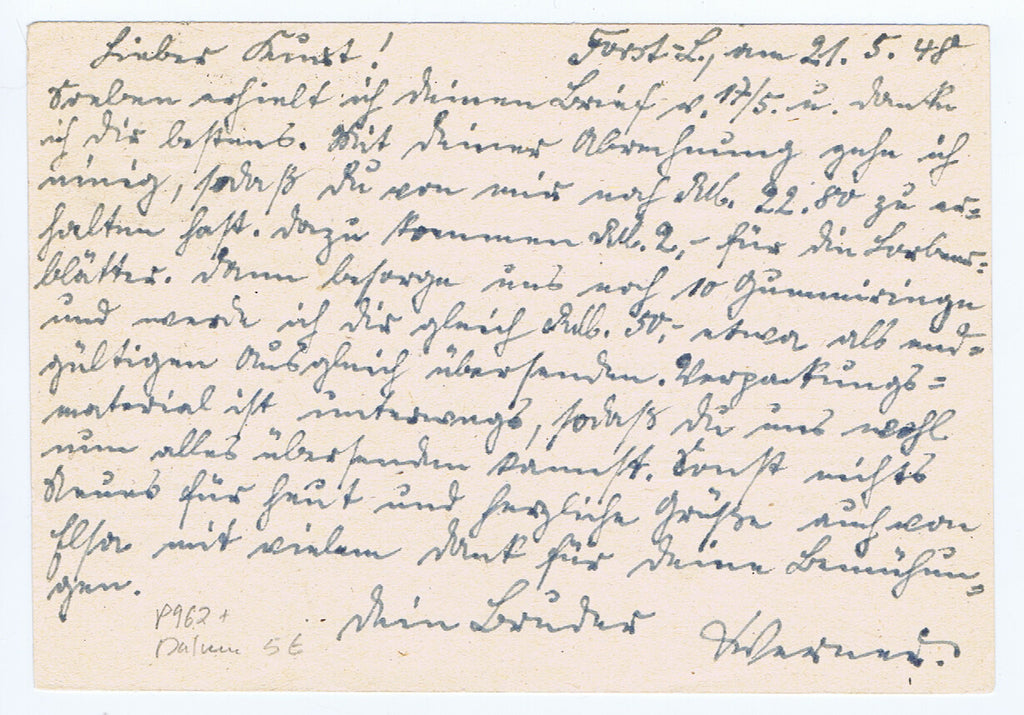 Lieber Kurt! Forst-L., am 21. 5. 48
Soeben erhielt ich deinen Brief v. 17/5. u. danke
ich dir bestens. Mit deiner Abrechnung gehe ich
einig, sodaß du von mir noch RM. 22.80 zu er=
halten hast. Dazu kommen RM. 2,- für die Lorbeer=
blätter. Dann besorge uns noch 10 Gummiringe
und werde ich dir gleich RM. 50,- etwa als end=
gültigen Ausgleich übersenden. Verpackungs=
material ist unterwegs, sodaß du uns wohl
nun alles übersenden kannst. Sonst nichts
Neues für heut und herzliche Grüße auch von
Elsa mit vielem Dank für deine Bemühun=
gen.
Dein Bruder
Werner.
P962 +
Datum 5 €